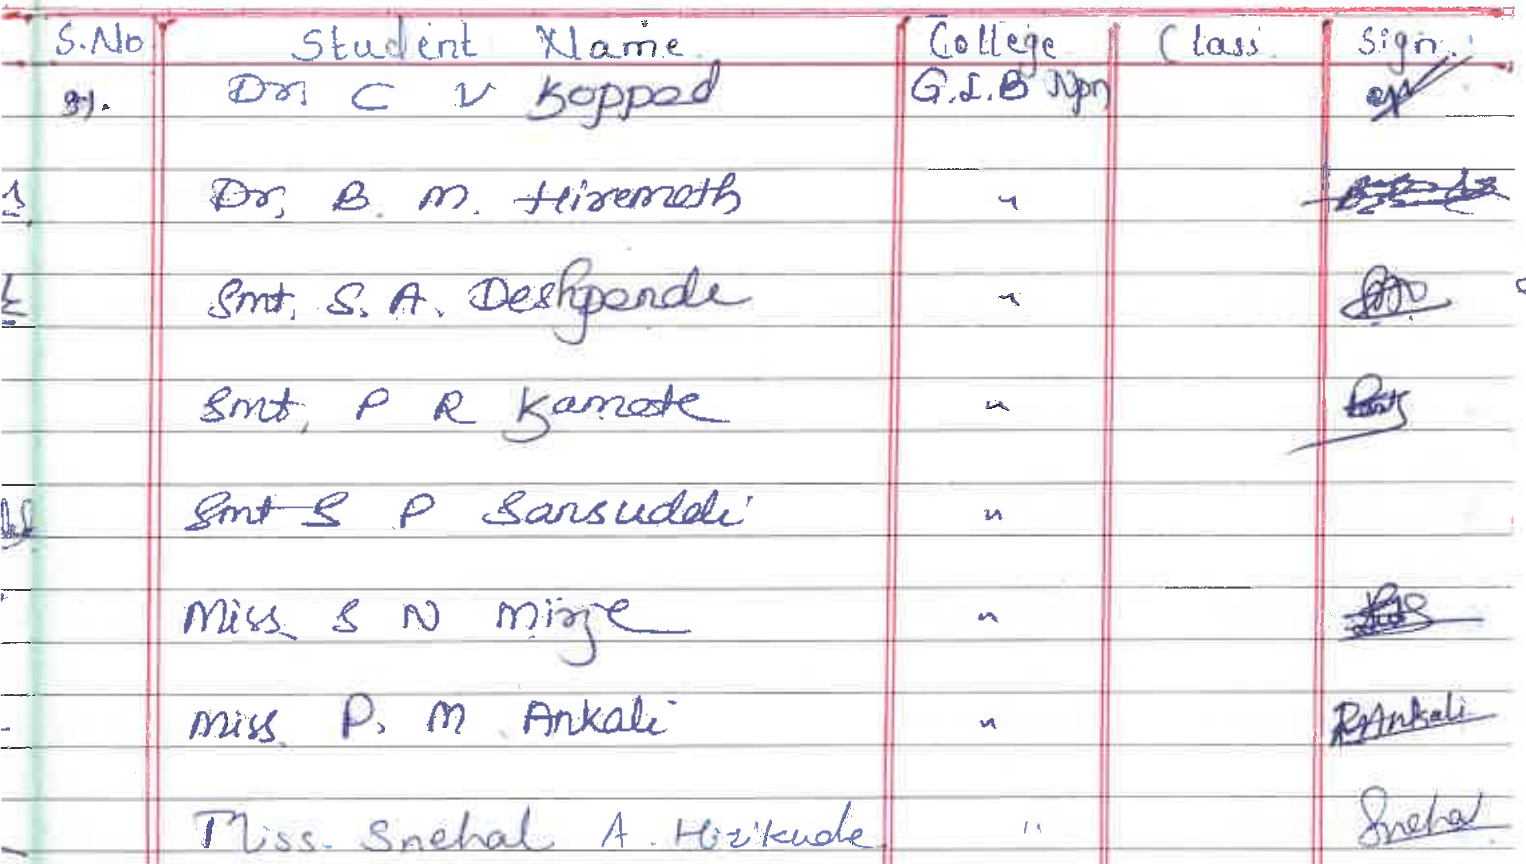 S.No Student Name College Class Sign.
Dr. C V Koppad G.I.B Npn
Dr. B. M. Hiremath "
Smt. S. A. Deshpande "
Smt. P R Kamate "
Smt S P Sansuddi "
Miss S N Mirje "
Miss P. M Ankali " P.Ankali
Miss. Snehal A. Hirikude " Snehal